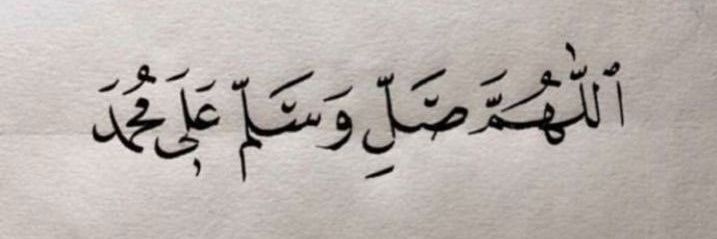 ٱللّٰهُمَّ صَلِّ وَسَلِّمْ عَلَى مُحَمَّد